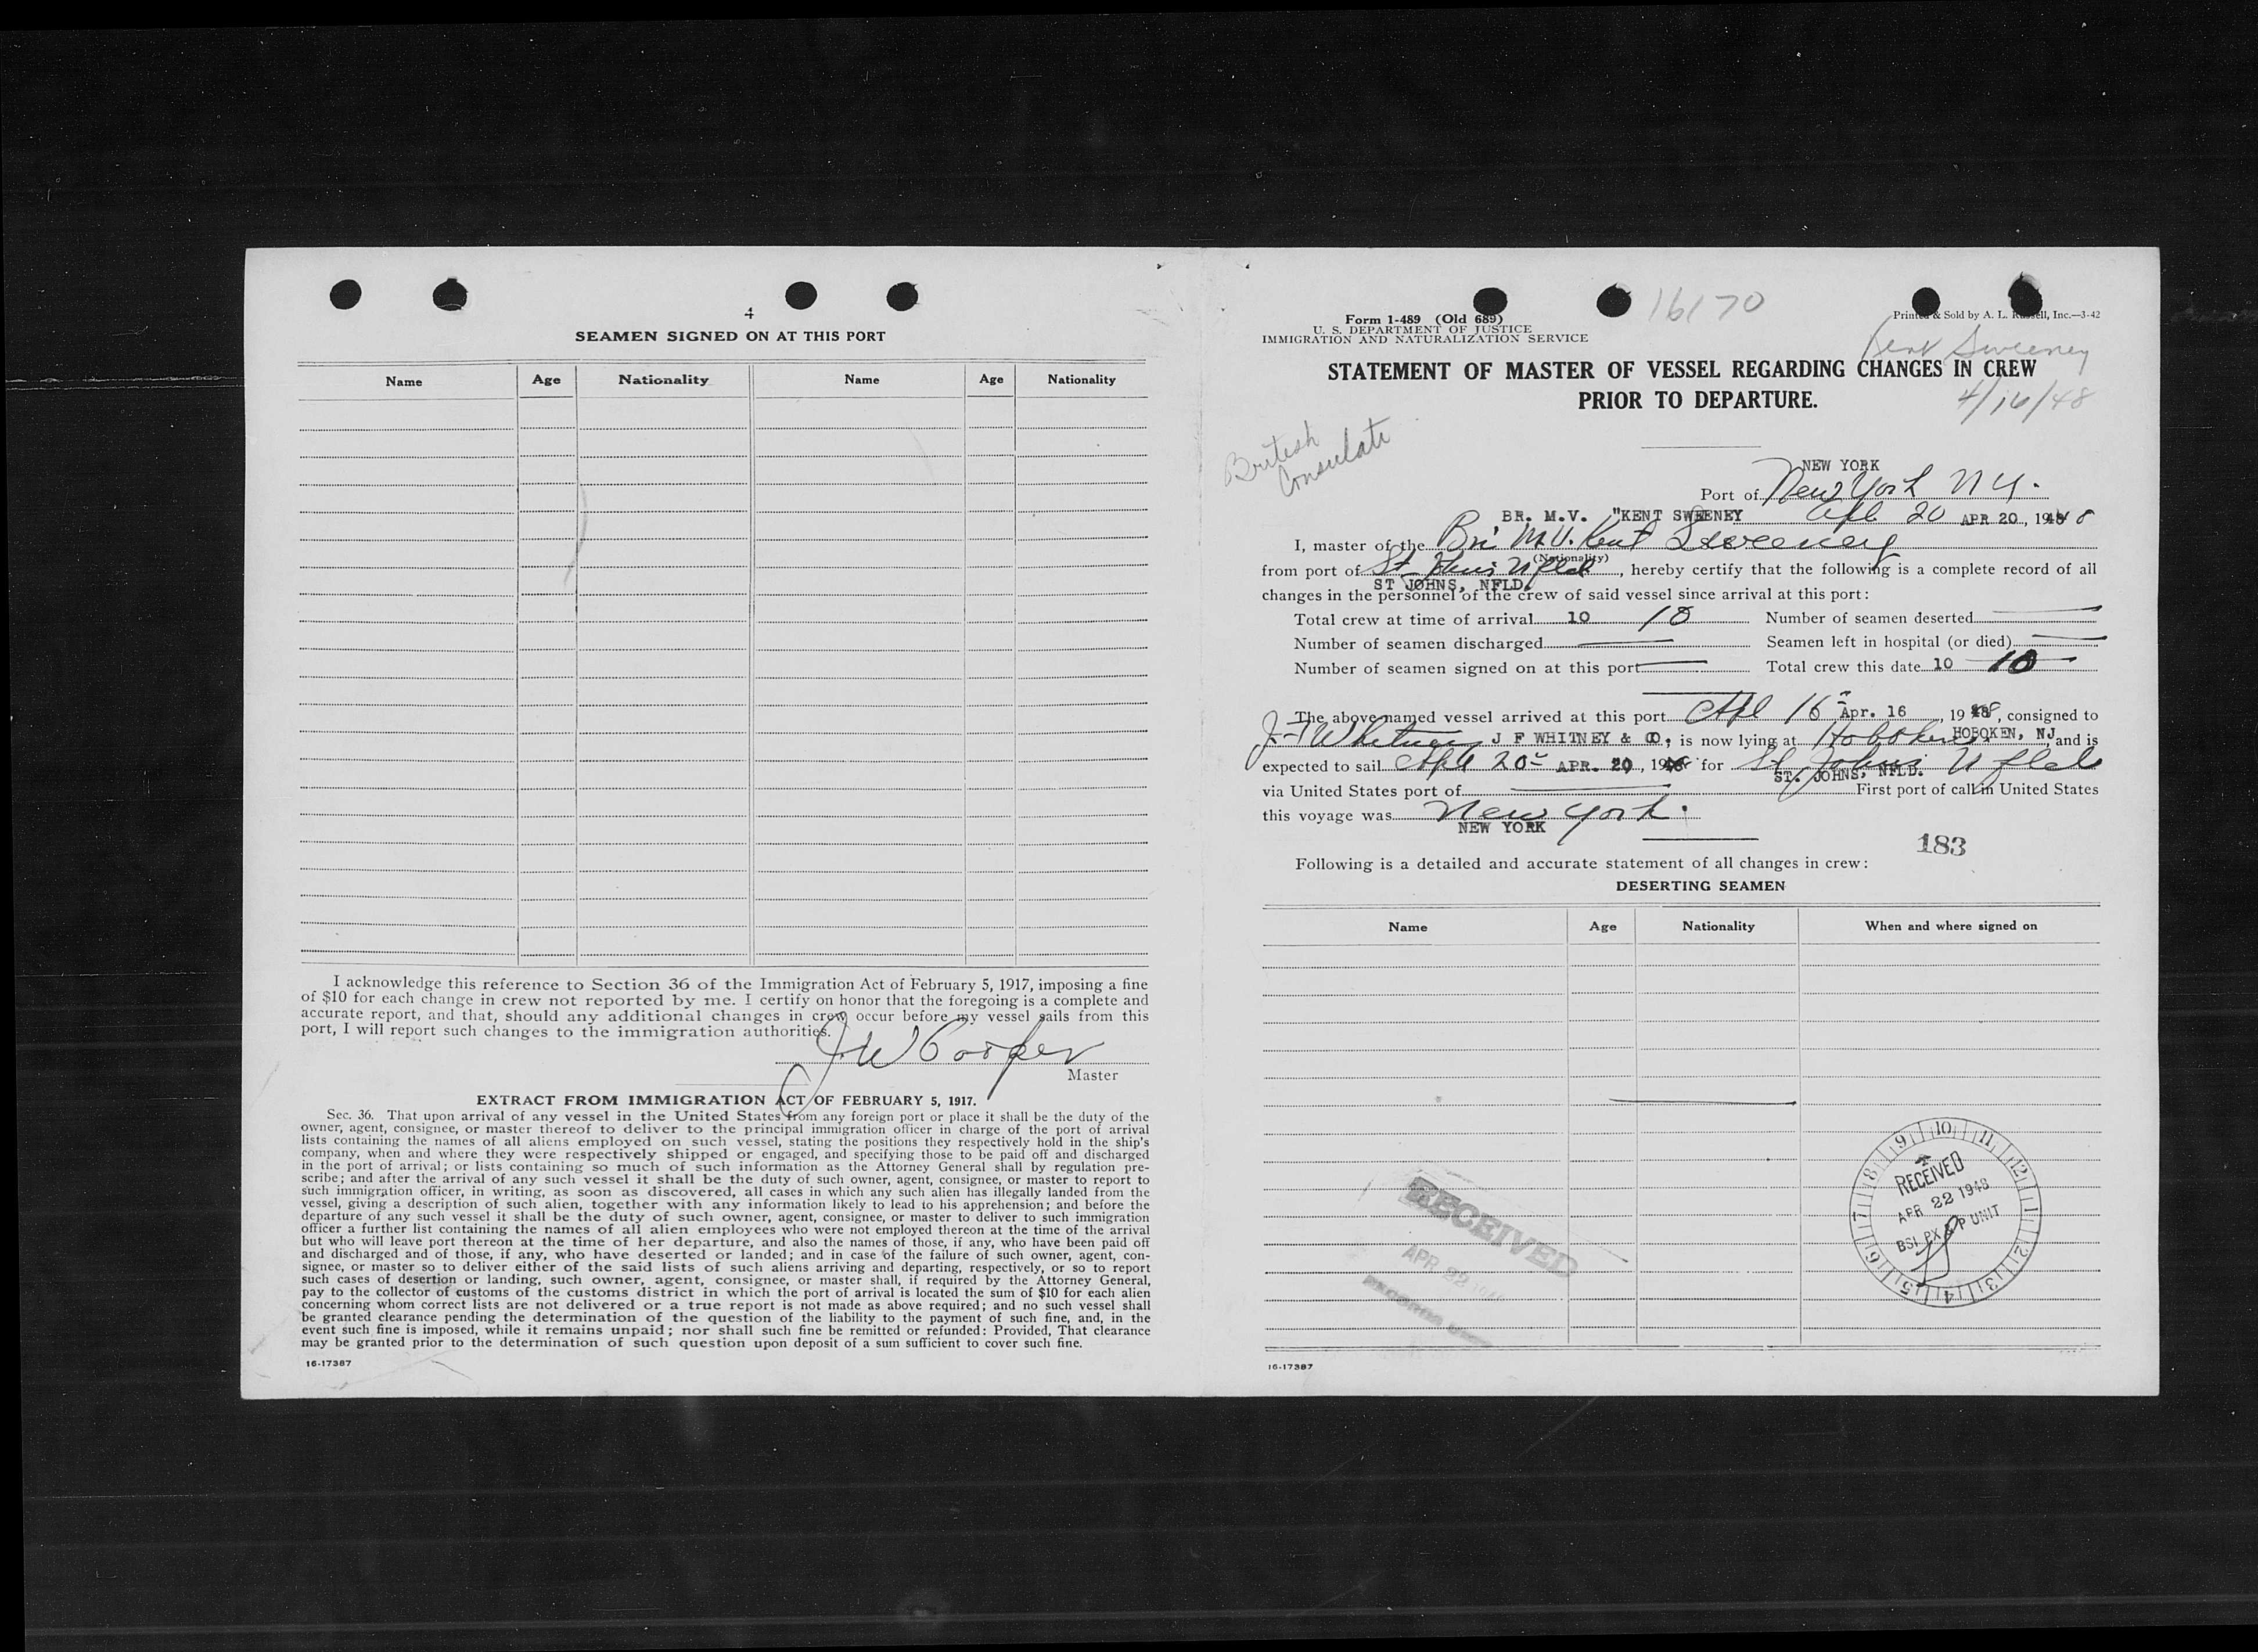 4
SEAMEN SIGNED ON AT THIS PORT
Name Age Nationality Name Age Nationality
I acknowledge this reference to Section 36 of the Immigration Act of February 5, 1917, imposing a fine
of $10 for each change in crew not reported by me. I certify on honor that the foregoing is a complete and
accurate report, and that, should any additional changes in crew occur before my vessel sails from this
port, I will report such changes to the immigration authorities.
J W Cooper
Master
EXTRACT FROM IMMIGRATION ACT OF FEBRUARY 5, 1917.
Sec. 36. That upon arrival of any vessel in the United States from any foreign port or place it shall be the duty of the
owner, agent, consignee, or master thereof to deliver to the principal immigration officer in charge of the port of arrival
lists containing the names of all aliens employed on such vessel, stating the positions they respectively hold in the ship's
company, when and where they were respectively shipped or engaged, and specifying those to be paid off and discharged
in the port of arrival; or lists containing so much of such information as the Attorney General shall by regulation pre-
scribe; and after the arrival of any such vessel it shall be the duty of such owner, agent, consignee, or master to report to
such immigration officer, in writing, as soon as discovered, all cases in which any such alien has illegally landed from the
vessel, giving a description of such alien, together with any information likely to lead to his apprehension; and before the
departure of any such vessel it shall be the duty of such owner, agent, consignee, or master to deliver to such immigration
officer a further list containing the names of all alien employees who were not employed thereon at the time of the arrival
but who will leave port thereon at the time of her departure, and also the names of those, if any, who have been paid off
and discharged and of those, if any, who have deserted or landed; and in case of the failure of such owner, agent, con-
signee, or master so to deliver either of the said lists of such aliens arriving and departing, respectively, or so to report
such cases of desertion or landing, such owner, agent, consignee, or master shall, if required by the Attorney General,
pay to the collector of customs of the customs district in which the port of arrival is located the sum of $10 for each alien
concerning whom correct lists are not delivered or a true report is not made as above required; and no such vessel shall
be granted clearance pending the determination of the question of the liability to the payment of such fine, and, in the
event such fine is imposed, while it remains unpaid; nor shall such fine be remitted or refunded: Provided, That clearance
may be granted prior to the determination of such question upon deposit of a sum sufficient to cover such fine.
16-17387
16170
Form 1-489 (Old 689)
U. S. DEPARTMENT OF JUSTICE
IMMIGRATION AND NATURALIZATION SERVICE
Printed & Sold by A. L. Russell, Inc.—3-42
Kent Sweeney
4/16/48
STATEMENT OF MASTER OF VESSEL REGARDING CHANGES IN CREW
PRIOR TO DEPARTURE.
British
Consulate
NEW YORK
Port of New York N Y.
BR. M.V. "KENT SWEENEY Apl 20 APR 20, 1948
I, master of the Br. M.V. Kent Sweeney
(Nationality)
from port of St Johns Nfld, hereby certify that the following is a complete record of all
ST JOHNS, NFLD.
changes in the personnel of the crew of said vessel since arrival at this port:
Total crew at time of arrival 10 10 Number of seamen deserted
Number of seamen discharged Seamen left in hospital (or died)
Number of seamen signed on at this port Total crew this date 10 10
The above named vessel arrived at this port Apl 16 Apr. 16, 1948, consigned to
J F Whitney J F WHITNEY & CO, is now lying at Hoboken HOBOKEN, NJ and is
expected to sail Apl 20 APR. 20, 1948 for St Johns Nfld
ST. JOHNS, NFLD.
via United States port of First port of call in United States
this voyage was New York.
NEW YORK
183
Following is a detailed and accurate statement of all changes in crew:
DESERTING SEAMEN
Name Age Nationality When and where signed on
RECEIVED
APR 22 1948
RECEIVED
APR 22 1948
BSI PX & P UNIT
9 10 11 12 1 2 3 4 5 6 7 8
16-17387